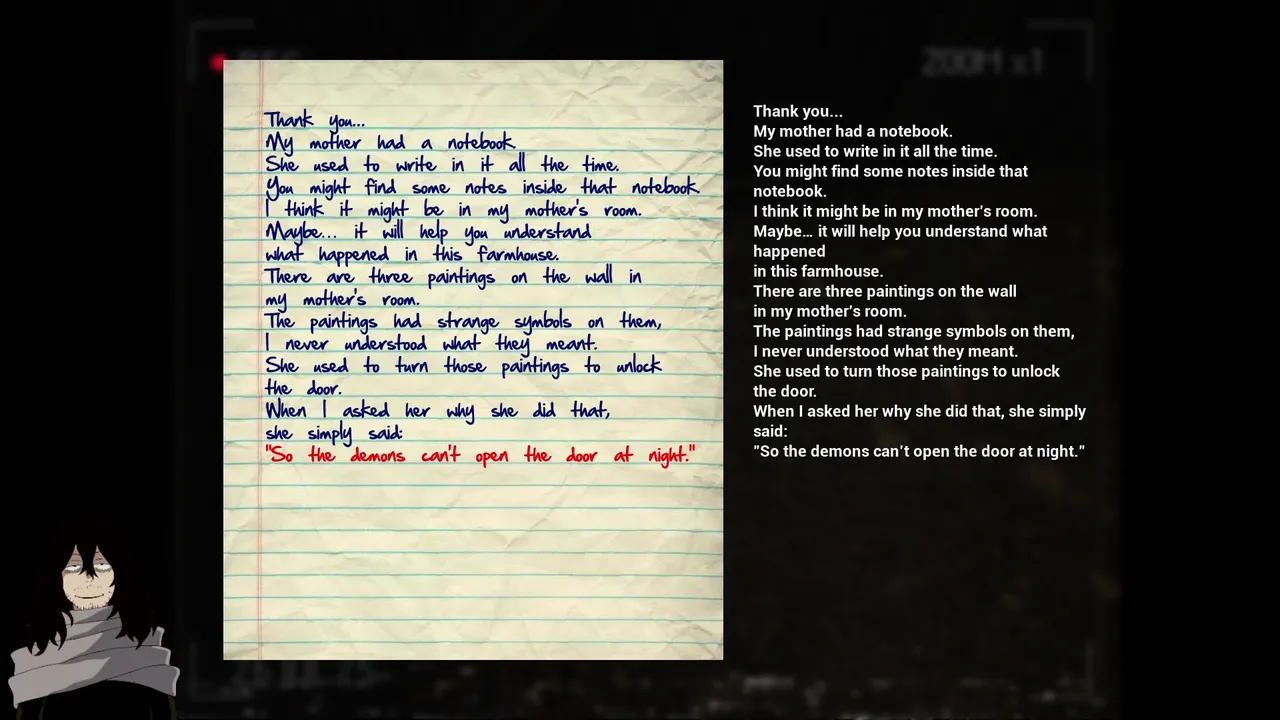 REC
ZOOM x1
Thank you...
My mother had a notebook.
She used to write in it all the time.
You might find some notes inside that notebook.
I think it might be in my mother's room.
Maybe... it will help you understand
what happened in this farmhouse.
There are three paintings on the wall in
my mother's room.
The paintings had strange symbols on them,
I never understood what they meant.
She used to turn those paintings to unlock
the door.
When I asked her why she did that,
she simply said:
"So the demons can't open the door at night."
Thank you...
My mother had a notebook.
She used to write in it all the time.
You might find some notes inside that
notebook.
I think it might be in my mother's room.
Maybe... it will help you understand what
happened
in this farmhouse.
There are three paintings on the wall
in my mother's room.
The paintings had strange symbols on them,
I never understood what they meant.
She used to turn those paintings to unlock
the door.
When I asked her why she did that, she simply
said:
"So the demons can't open the door at night."